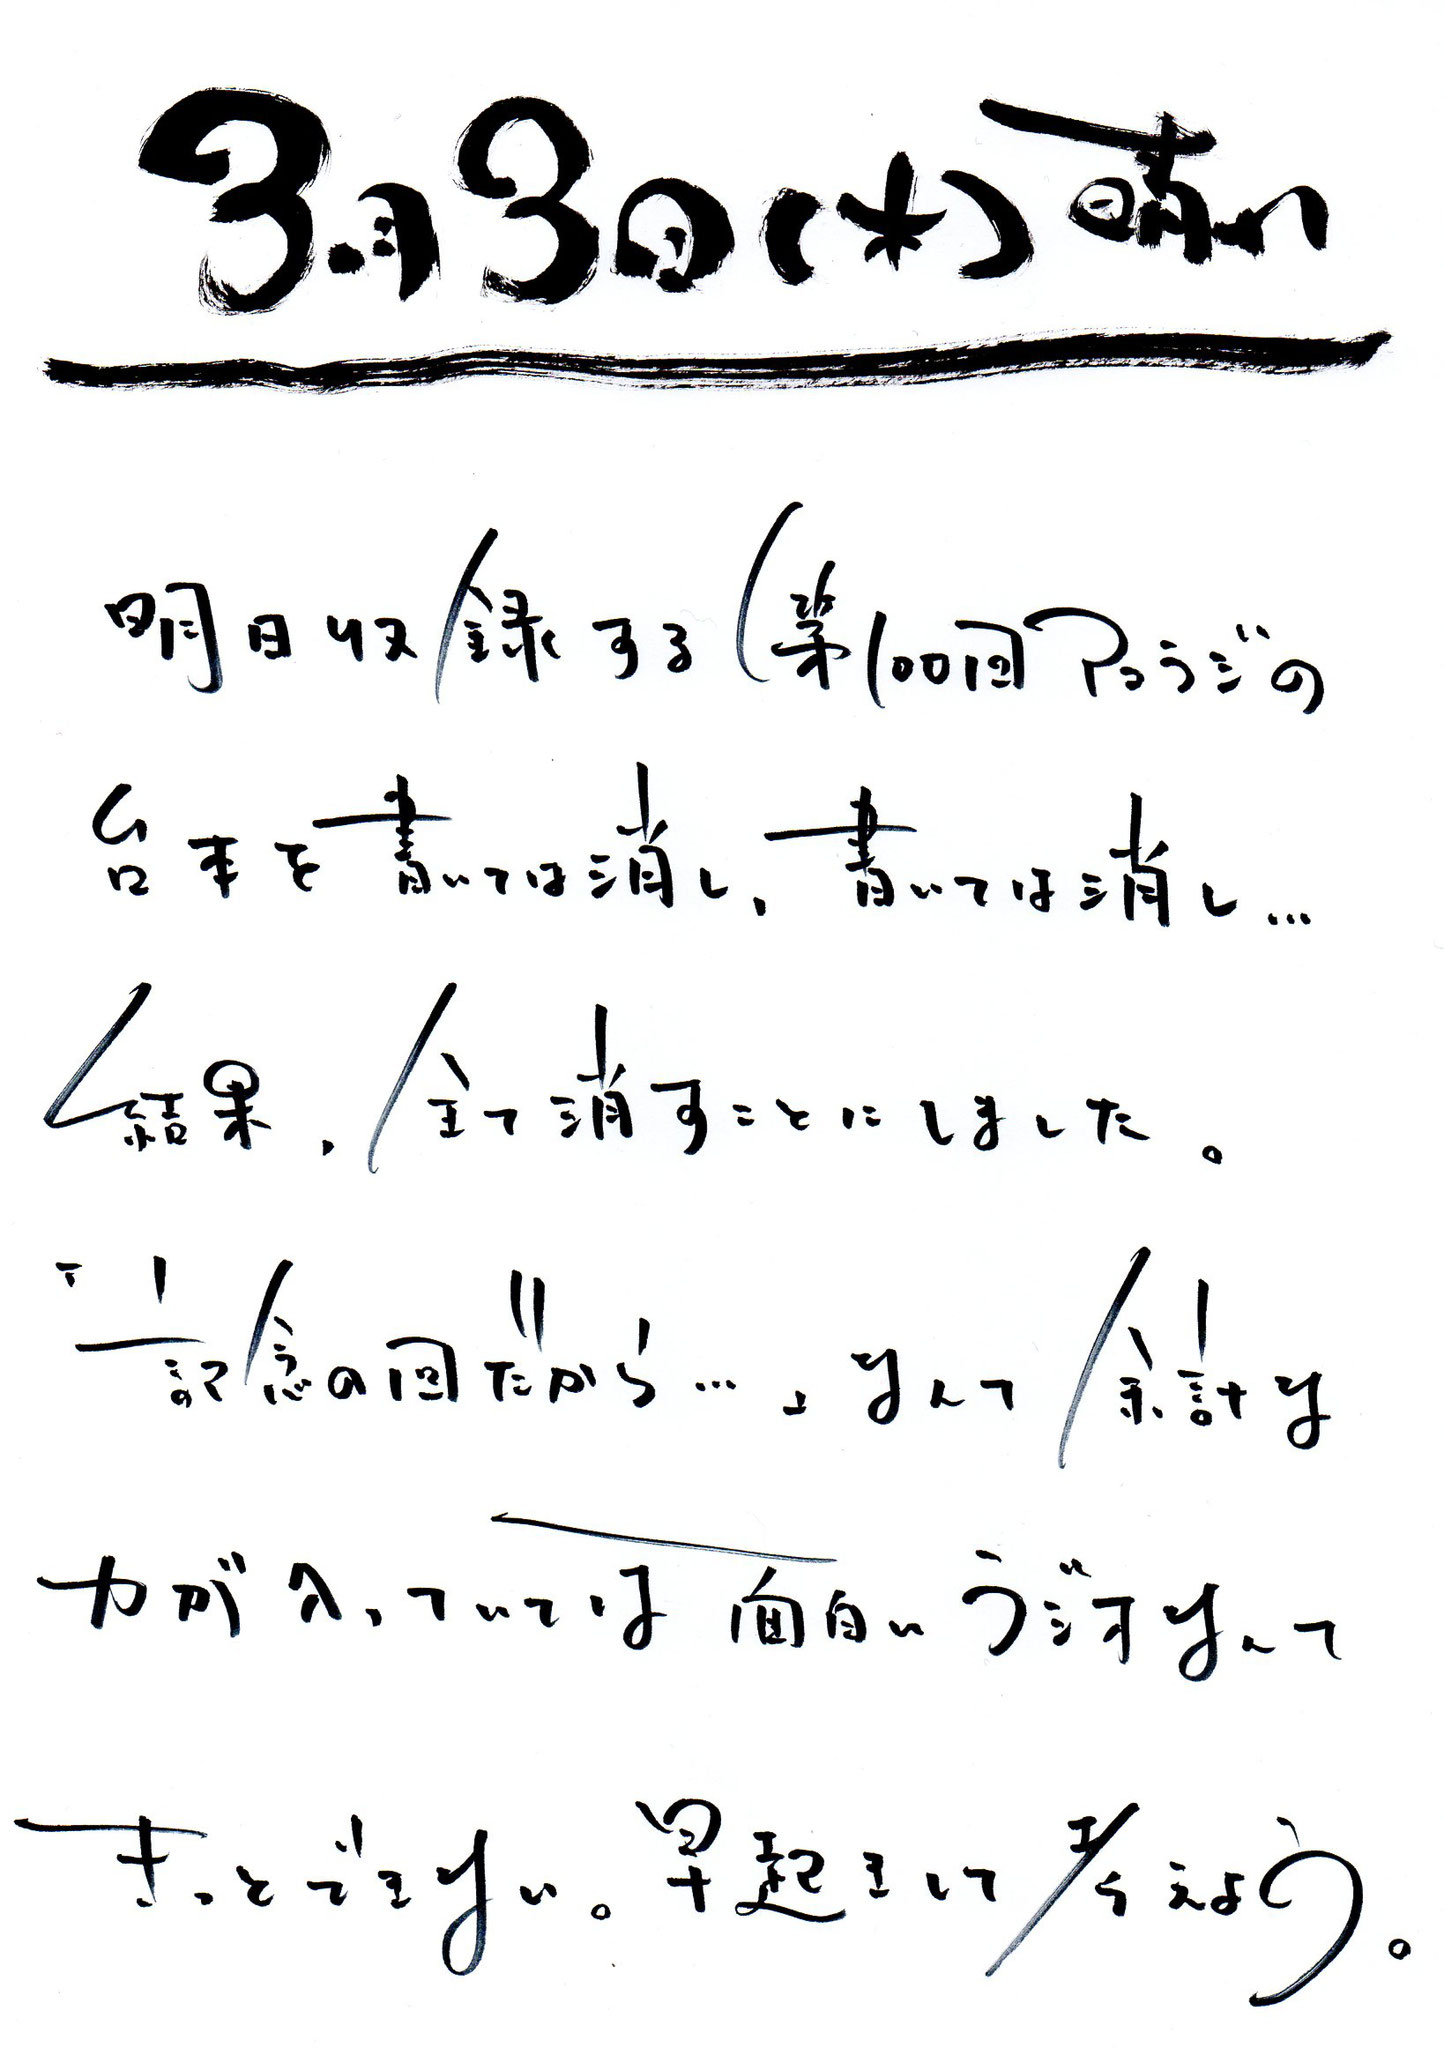 3月3日(水) 晴れ
明日収録する第100回アコラジの
台本を書いては消し、書いては消し…
結果、全て消すことにしました。
「記念の回だから…」なんて余計な
力が入っていては面白いラジオなんて
きっとできない。早起きして考えよう。